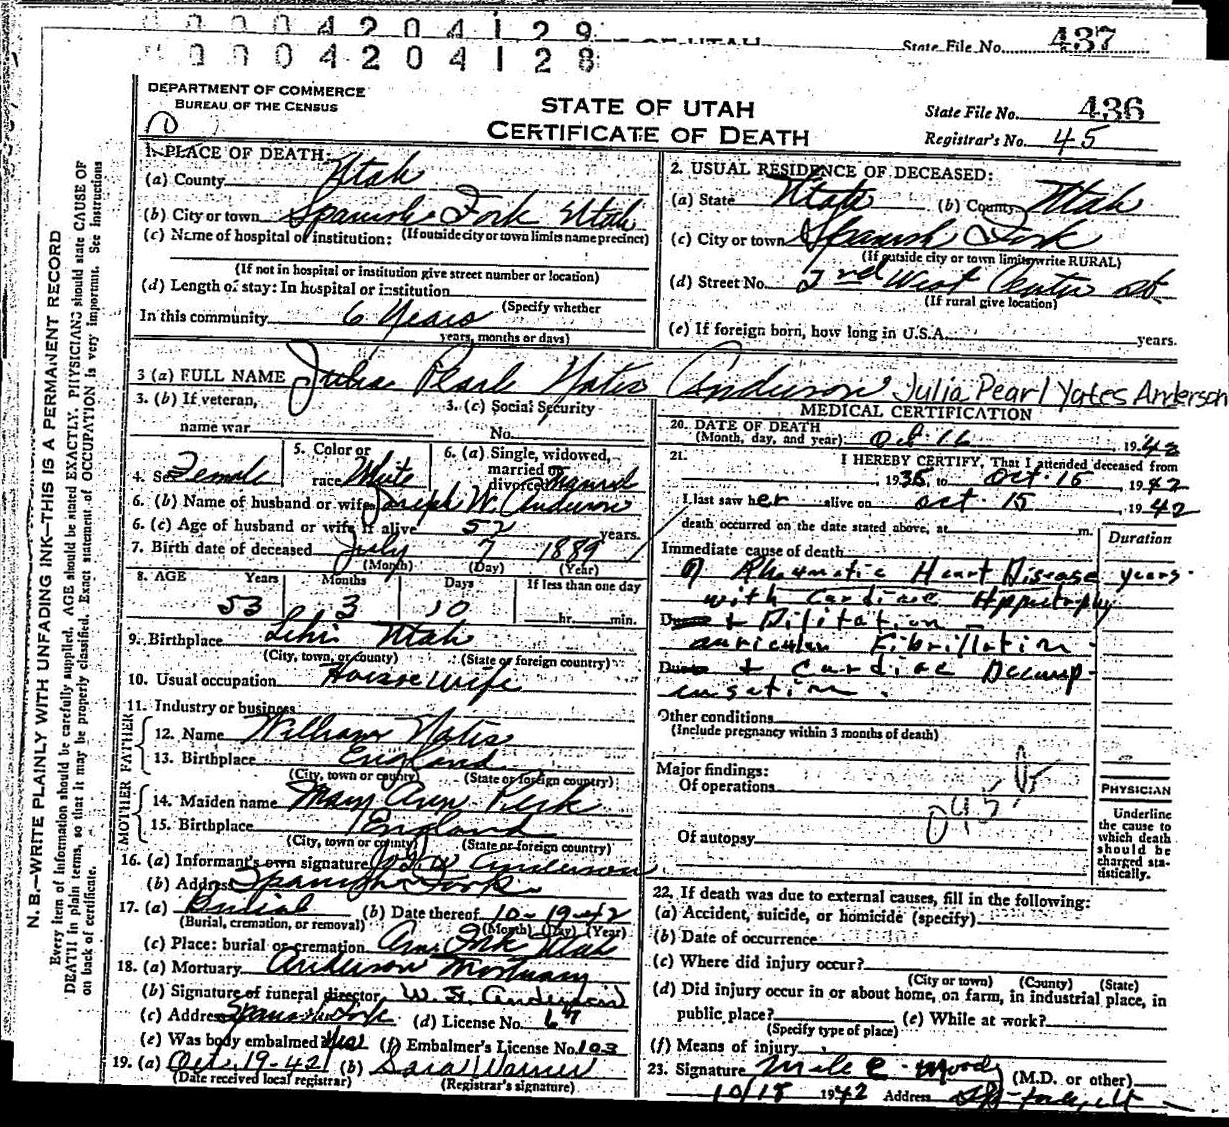 0 0 0 4 2 0 4 1 2 9
OF UTAH
State File No. 437
0 0 0 4 2 0 4 1 2 8
DEPARTMENT OF COMMERCE
BUREAU OF THE CENSUS
STATE OF UTAH
CERTIFICATE OF DEATH
State File No. 436
Registrar's No. 45
N. B.—WRITE PLAINLY WITH UNFADING INK—THIS IS A PERMANENT RECORD
Every item of information should be carefully supplied. AGE should be stated EXACTLY. PHYSICIANS should state CAUSE OF
DEATH in plain terms, so that it may be properly classified. Exact statement of OCCUPATION is very important. See instructions
on back of certificate.
1. PLACE OF DEATH:
(a) County Utah
(b) City or town Spanish Fork Utah
(c) Name of hospital or institution: (If outside city or town limits name precinct)
(If not in hospital or institution give street number or location)
(d) Length of stay: In hospital or institution
(Specify whether
In this community 6 Years
years, months or days)
2. USUAL RESIDENCE OF DECEASED:
(a) State Utah (b) County Utah
(c) City or town Spanish Fork
(If outside city or town limits write RURAL)
(d) Street No. 2nd West Center St
(If rural give location)
(e) If foreign born, how long in U.S.A. years.
3 (a) FULL NAME Julia Pearl Yates Anderson Julia Pearl Yates Anderson
3. (b) If veteran,
name war
3. (c) Social Security
No.
4. Sex Female
5. Color or
race White
6. (a) Single, widowed,
married or
divorced Married
6. (b) Name of husband or wife Joseph W. Anderson
6. (c) Age of husband or wife if alive 52 years.
7. Birth date of deceased July 7 1889
(Month) (Day) (Year)
8. AGE Years Months Days If less than one day
53 3 10 hr. min.
9. Birthplace Lehi Utah
(City, town, or county) (State or foreign country)
10. Usual occupation Housewife
11. Industry or business
FATHER
12. Name William Yates
13. Birthplace England
(City, town or county) (State or foreign country)
MOTHER
14. Maiden name Mary Ann Kirk
15. Birthplace England
(City, town or county) (State or foreign country)
16. (a) Informant's own signature Anderson
(b) Address Spanish Fork
17. (a) Burial (b) Date thereof 10-19-42
(Burial, cremation, or removal) (Month) (Day) (Year)
(c) Place: burial or cremation Am. Fork Utah
18. (a) Mortuary Anderson Mortuary
(b) Signature of funeral director W. H. Anderson
(c) Address Spanish Fork (d) License No. 67
(e) Was body embalmed Yes (f) Embalmer's License No. 103
19. (a) Oct. 19-42 (b) Sara Warner
(Date received local registrar) (Registrar's signature)
MEDICAL CERTIFICATION
20. DATE OF DEATH
(Month, day, and year) Oct. 16, 1942
21. I HEREBY CERTIFY, That I attended deceased from
1935, to Oct. 16, 1942
I last saw her alive on Oct. 15, 1942
death occurred on the date stated above, at m.
Duration
Immediate cause of death
Rheumatic Heart Disease years.
with Cardiac Hypertrophy
Due to + Dilitation -
auricular Fibrillation -
Due to + Cardiac Decomp-
ensation.
Other conditions
(Include pregnancy within 3 months of death)
Major findings:
Of operations
Of autopsy
PHYSICIAN
Underline
the cause to
which death
should be
charged sta-
tistically.
22. If death was due to external causes, fill in the following:
(a) Accident, suicide, or homicide (specify)
(b) Date of occurrence
(c) Where did injury occur?
(City or town) (County) (State)
(d) Did injury occur in or about home, on farm, in industrial place, in
public place? (e) While at work?
(Specify type of place)
(f) Means of injury
23. Signature Moody (M.D. or other)
10/18 1942 Address